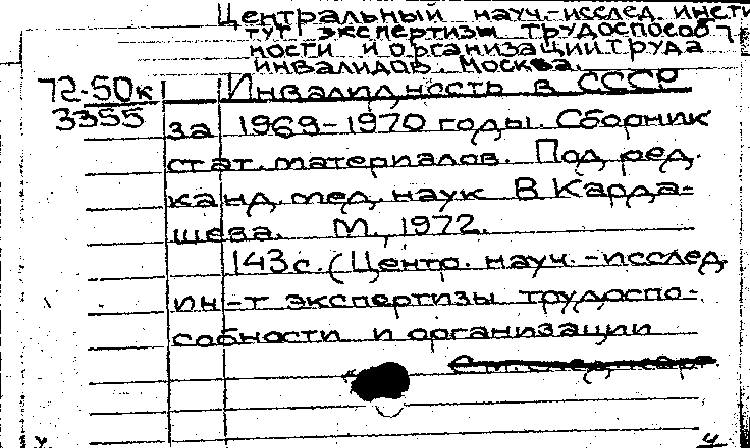 Центральный науч.-исслед. инсти
тут экспертизы трудоспособ
ности и организации труда
инвалидов. Москва.
72-50к Инвалидность в СССР
3355 за 1969-1970 годы. Сборник
стат. материалов. Под ред.
канд. мед. наук В Карда-
шева. М., 1972.
143с. (Центр. науч.-исслед.
ин-т экспертизы трудоспо-
собности и организации
См. след. карт.